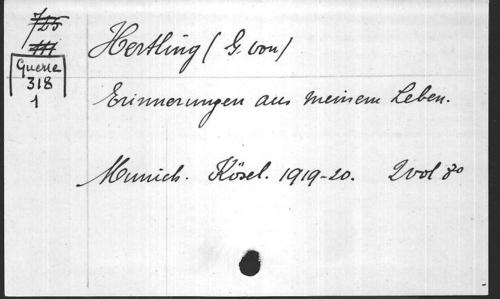 725
III
Guerre
318
1
Hertling (G. von)
Erinnerungen aus meinem Leben.
Munich. Kösel. 1919-20. 2 vol 8o